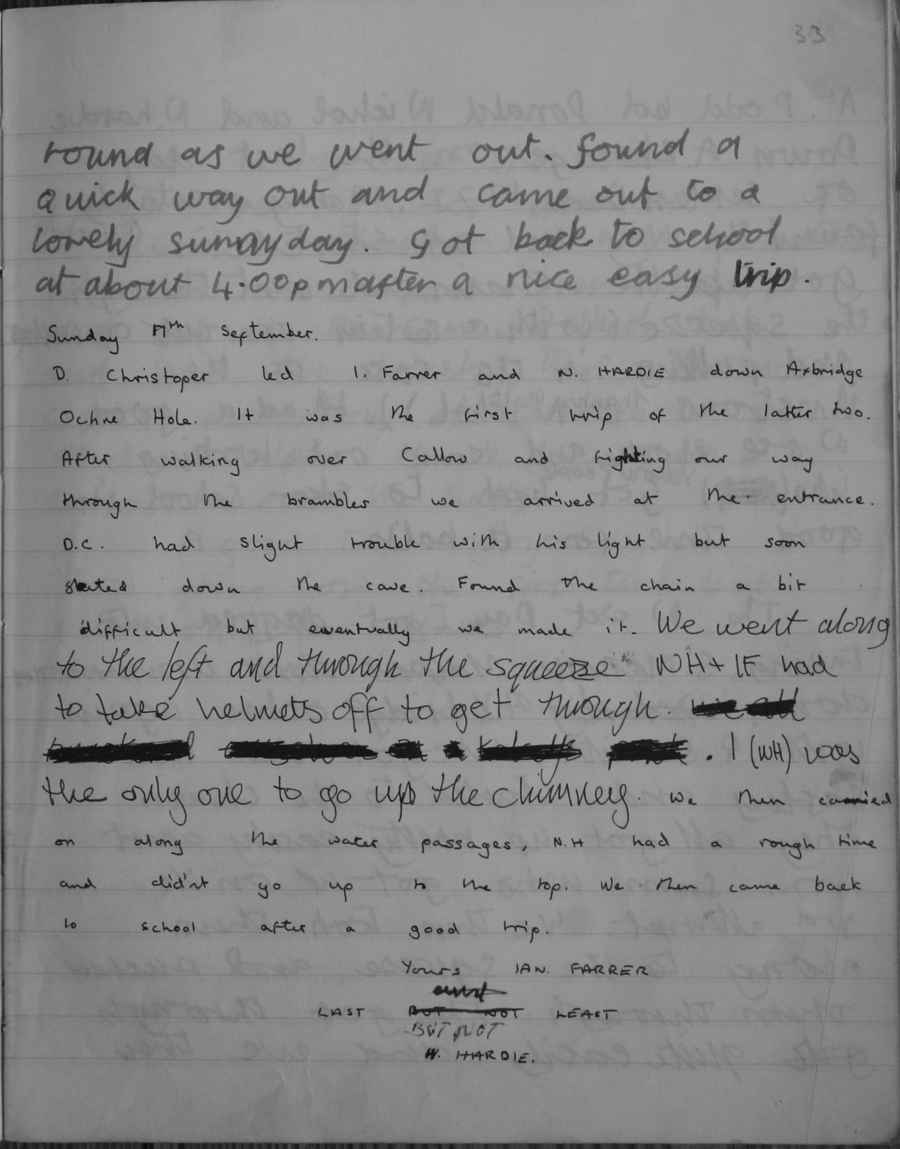 33
round as we went out. found a
quick way out and came out to a
lovely sunnyday. Got back to school
at about 4.00pm after a nice easy trip.
Sunday 17th September.
D. Christoper led I. Farrer and N. HARDIE down Axbridge
Ochre Hole. It was the first trip of the latter two.
After walking over Callow and fighting our way
through the brambles we arrived at the entrance.
D.C. had slight trouble with his light but soon
down the cave. Found the chain a bit
difficult but eventually we made it. We went along
to the left and through the squeeze" NH+ IF had
to take helmets off to get through. we all
. I (NH) was
the only one to go up the chimney. We then carried
on along the water passages, N.H had a rough time
and didn't go up to the top. We then came back
to school after a good trip.
Yours IAN. FARRER
LAST BUT NOT LEAST
BUT NOT
N. HARDIE.